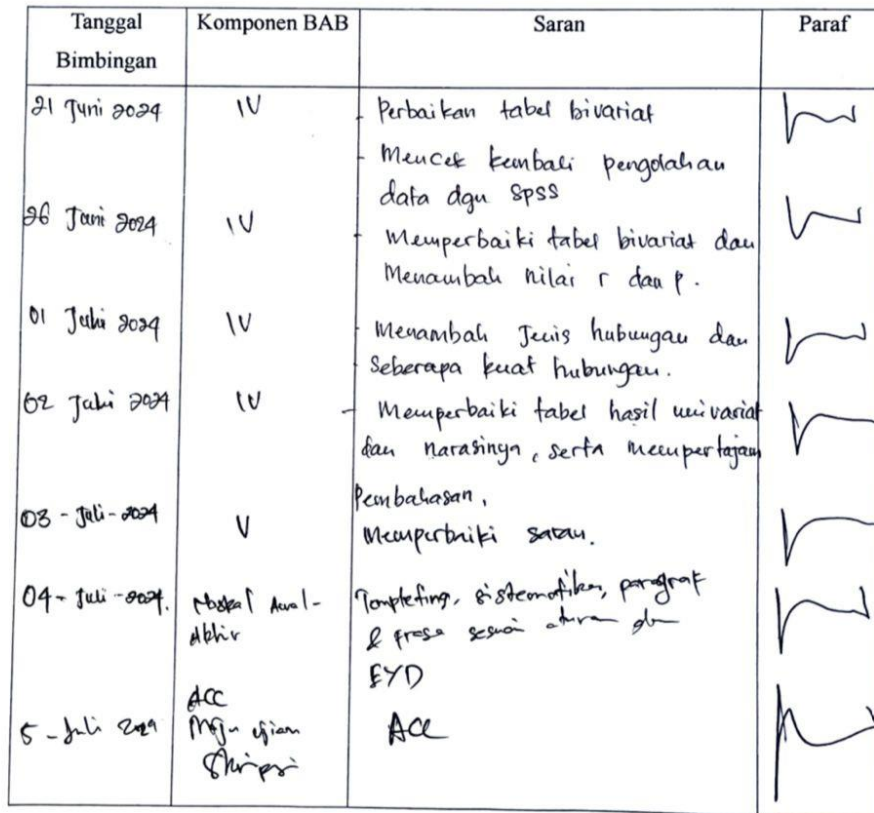 Tanggal Bimbingan Komponen BAB Saran Paraf
21 Juni 2024 IV - Perbaikan tabel bivariat
- Mencek kembali pengolahan
data dgn SPSS
26 Juni 2024 IV - Memperbaiki tabel bivariat dan
Menambah nilai r dan p.
01 Juli 2024 IV - Menambah Jenis hubungan dan
Seberapa kuat hubungan.
02 Juli 2024 IV - Memperbaiki tabel hasil univariat
dan narasinya, serta mempertajam
Pembahasan,
03 - Juli - 2024 V Memperbaiki saran.
04 - Juli - 2024. Awal - Akhir sistematika, paragraf
& frase sesuai aturan
EYD
5 - Juli 2024 ACC ujian Skripsi ACC